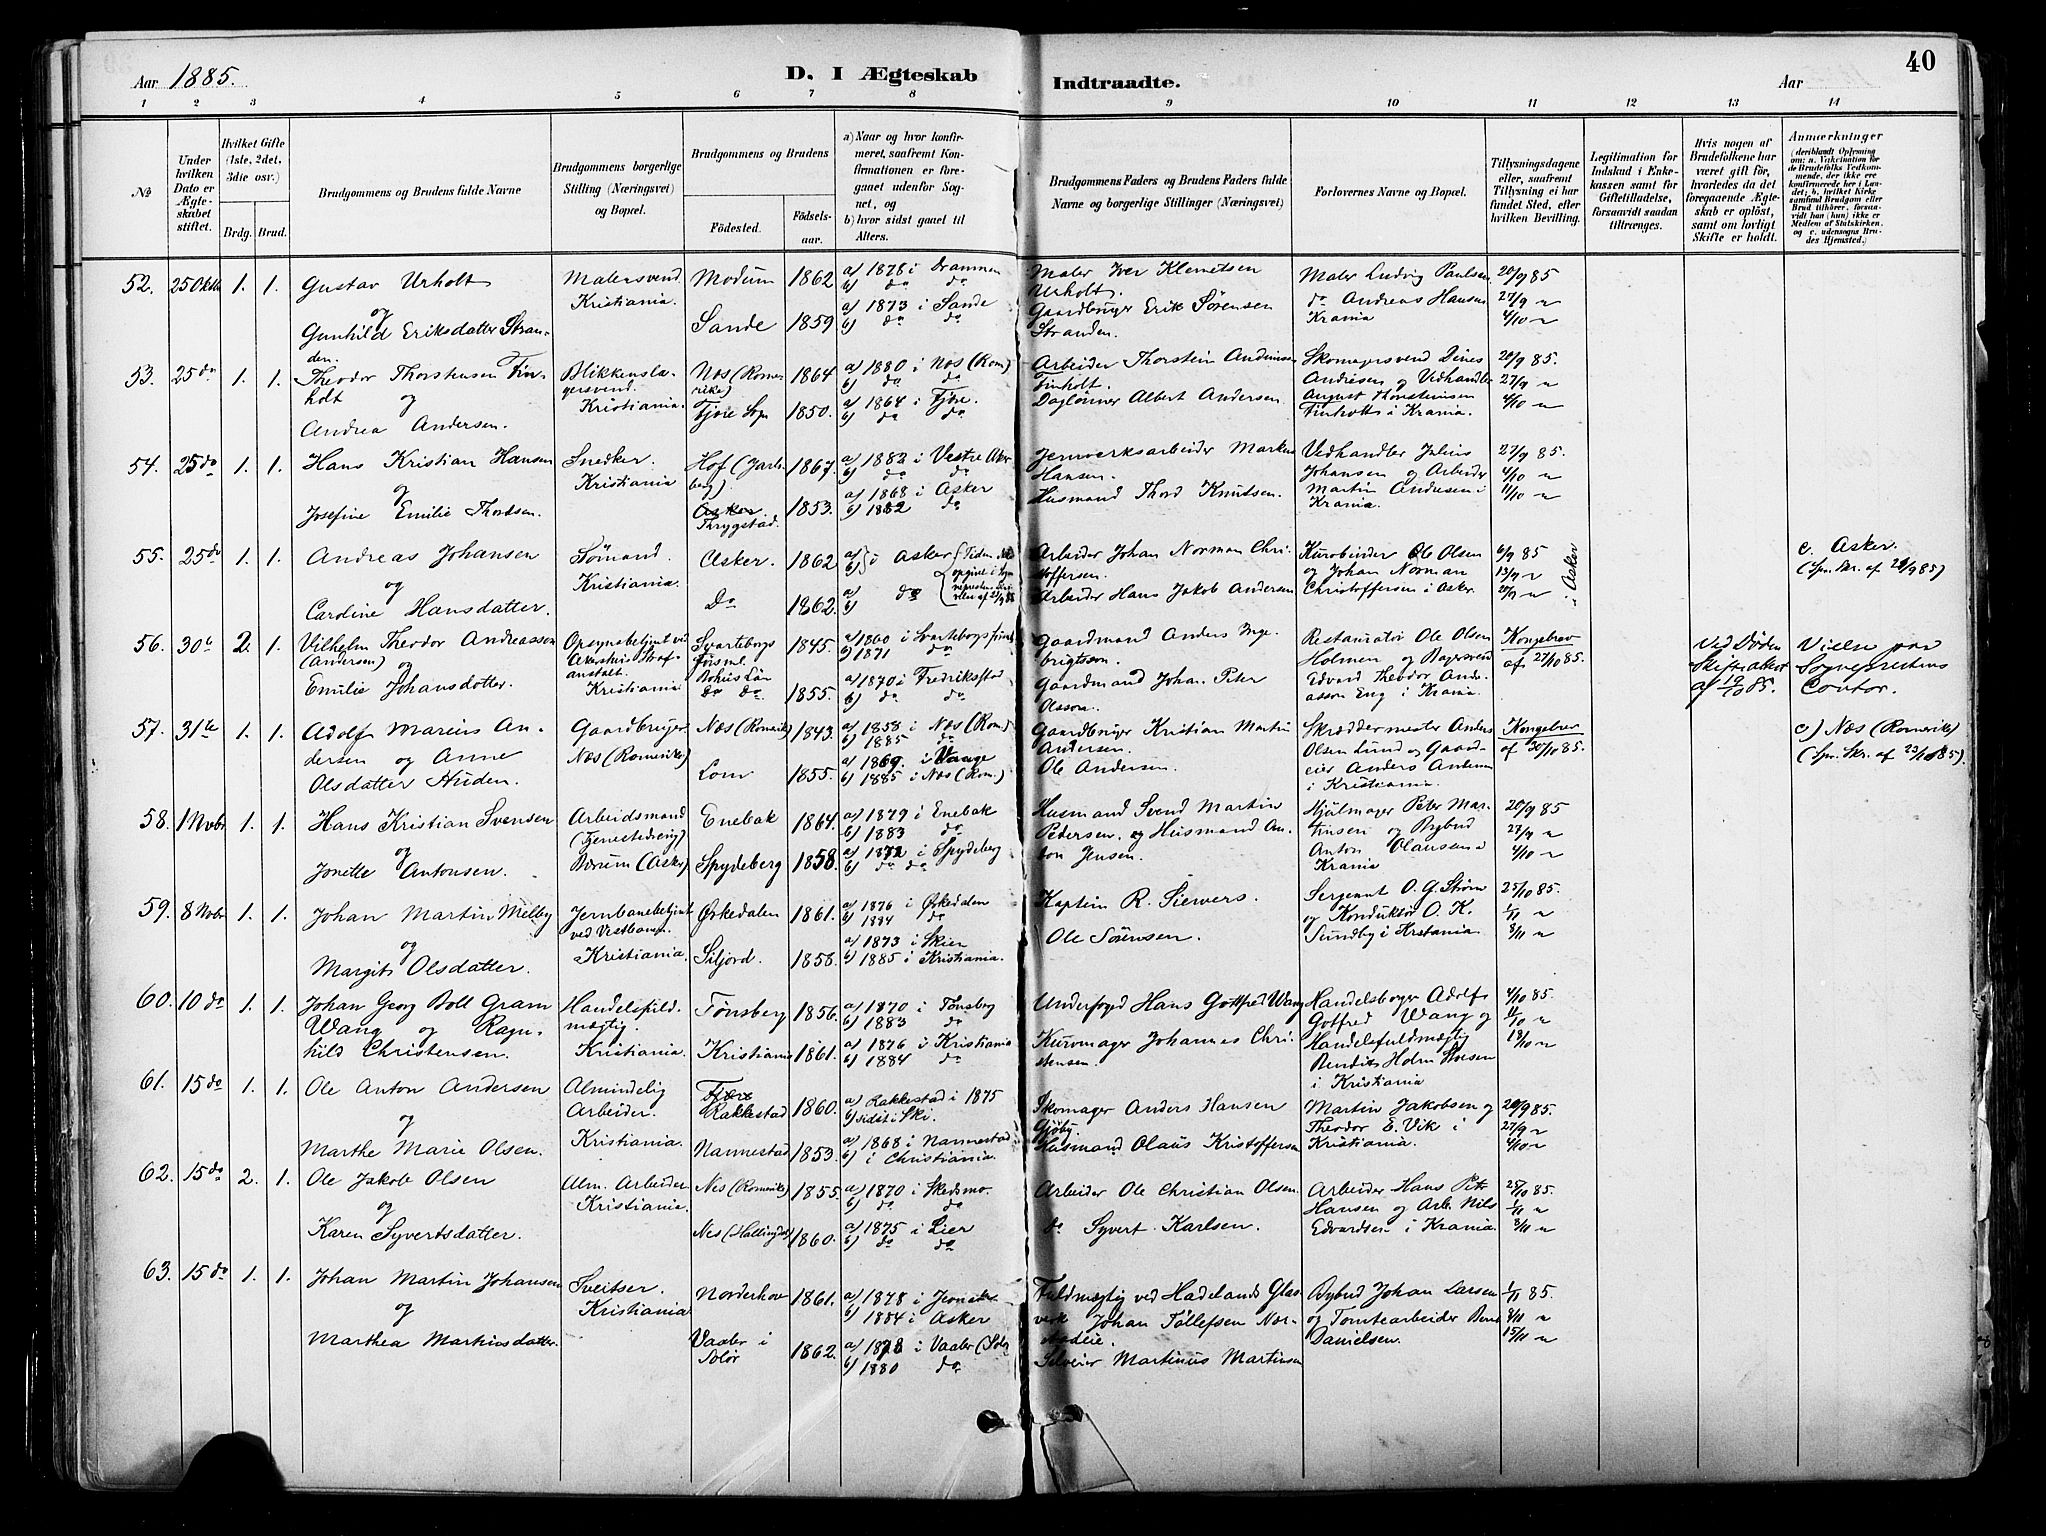 Aar 1885.
D. I Ægteskab
Indtraadte.
Aar
40
1 2 3 4 5 6 7 8 9 10 11 12 13 14
No
Under hvilken Dato er Ægteskabet stiftet.
Hvilket Gifte (1ste, 2det, 3die osv.)
Brdg. Brud.
Brudgommens og Brudens fulde Navne
Brudgommens borgerlige Stilling (Næringsvei) og Bopæl.
Brudgommens og Brudens
Fødested.
Fødselsaar.
a) Naar og hvor konfirmeret, saafremt Konfirmationen er foregaaet udenfor Sognet, og
b) hvor sidst gaaet til Alters.
Brudgommens Faders og Brudens Faders fulde Navne og borgerlige Stillinger (Næringsvei)
Forlovernes Navne og Bopæl.
Tillysningsdagene eller, saafremt Tillysning ei har fundet Sted, efter hvilken Bevilling.
Legitimation for Indskud i Enkekassen samt for Giftetilladelse, forsaavidt saadan tiltrænges.
Hvis nogen af Brudefolkene har været gift før, hvorledes da det foregaaende Ægteskab er opløst, samt om lovligt Skifte er holdt.
Anmærkninger
(deriblandt Oplysning om: a. Vakcination for de Brudefolks Vedkommende, der ikke ere konfirmerede her i Landet; b. hvilket Kirkesamfund Brudgom eller Brud tilhører, forsaavidt han (hun) ikke er Medlem af Statskirken, og c. udensogns Brudes Hjemsted.)
52. 25 Oktbr 1. 1. Gustav Urholt
og
Gunhild Eriksdatter Stranden.
Malersvend Kristiania.
Modum 1862 a) 1878 i Drammen
b) do do
Sande 1859 a) 1873 i Sande
b) do do
Maler Iver Klemetsen Urholt.
Gaardbruger Erik Sørensen Stranden.
Maler Ludvig Paulsen
do Andreas Hansen
Krania
20/9 85
27/9 "
4/10 "
53. 25 do 1. 1. Theodor Thorstensen Finholt
og
Andrea Andersen.
Blikkenslagersvend. Kristiania.
Næs (Romerike) 1864 a) 1880 i Næs (Rom)
b) do do
1850. a) 1864 i
b) do do
Arbeider Thorstein Andersen Finholt.
Daglønner Albert Andersen
Skomagersvend Dines Andresen og Vedhandler August Thorsteinsen Finholt i Krania.
20/9 85.
27/9 "
4/10 "
54. 25 do 1. 1. Hans Kristian Hansen
og
Josefine Emilie Thordsen.
Snedker. Kristiania
Hof (Jarlsberg) 1867 a) 1882 i Vestre Aker
b) do do
Asker Thrygstad. 1853. a) 1868 i Asker
b) 1882 do
Jernverksarbeider Markus Hansen.
Husmand Thord Knutsen.
Vedhandler Julius Johansen og Arbeider Martin Andersen i Krania.
27/9 85.
4/10 "
11/10 "
55. 25 do 1 1 Andreas Johansen
og
Caroline Hansdatter.
Sømand. Kristiania.
Asker. 1862 a) b) i Asker
Do 1862. a) b) do
Arbeider Johan Norman Christoffersen.
Arbeider Hans Jakob Andersen
Ole Olsen og Johan Norman Christoffersen i Asker
6/9 85
13/9 "
20/9 "
i Asker
c. Asker.
56. 30te 2. 1. Vilhelm Theodor Andreasson (Andersen)
og
Emilie Johansdatter.
Opsynsbetjent ved Akershus Strafanstalt. Kristiania
Svarteborgs
Bohus Län 1845. a) 1860 i Svarteborgs
b) 1871 do
do do 1855. a) 1870 i Fredriksstad
b) do do
Gaardmand Anders Ingebrigtsson.
Gaardmand Johan Peter Olsson.
Restauratør Ole Olsen Holmen og Edvard Theodor Andreasson Eng i Krania.
Kongebrev af 27/10 85.
Ved Døden
af 19/10 85.
Vielse paa Sognepræstens Contor.
57. 31te 1. 1. Adolf Marius Andersen og Anne Olsdatter Huden.
Gaardbruger Næs (Romerike)
Næs (Romerik) 1843. a) 1858 i Næs (Rom)
b) 1885 do
Lom 1855. a) 1869. i Vaage
b) 1885 i Næs (Rom.)
Gaardbruger Kristian Martin Andersen.
Ole Andersen.
Skræddermester Anders Olsen Lund og Gaardeier Anders Andersen i Kristiania.
Kongebrev af 30/10 85.
c) Næs (Romerike)
58. 1 Novbr. 1. 1. Hans Kristian Svensen
og
Jonette Antonsen.
Arbeidsmand
Bærum (Asker)
Enebak 1864. a) 1879 i Enebak
b) 1883 do
Spydeberg 1858. a) 1872 i Spydeberg
b) do do
Husmand Svend Martin Petersen. og Husmand Anton Jensen.
Hjulmager Peter Martinsen og Bybud Anton Olausen i Krania
20/9 85
4/10 "
59. 8 Novbr 1. 1. Johan Martin Melby
og
Margit Olsdatter.
Jernbanebetjent ved Vestbanen. Kristiania
Ørkedalen 1861. a) 1876 i Ørkedalen
b) 1884 do
Siljord. 1858. a) 1873 i Skien
b) 1885 i Kristiania.
Kaptein R. Sievers.
Ole Sørensen.
Sergeant O. G. Strøm og Konduktør O. K. Sundby i Kristiania.
25/10 85.
1/11 "
8/11 "
60. 10 do 1. 1. Johan Georg Boll Gram Wang og Ragnhild Christensen.
Handelsfuldmægtig. Kristiania.
Tønsberg 1856. a) 1870 i Tønsberg
b) 1883 do
Kristiania 1861. a) 1876 i Kristiania
b) 1884 do
Underfoged Hans Gotfred Wang
Kurvmager Johannes Christensen.
Handelsborger Adolf Gotfred Wang og Handelsfuldmægtig Holm i Kristiania
4/10 85.
11/10 "
18/10 "
61. 15 do 1. 1. Ole Anton Andersen
og
Marthe Marie Olsen.
Almindelig Arbeider. Kristiania.
Rakkestad 1860. a) Rakkestad i 1875
b) sidst i Ski.
Nannestad 1853. a) 1868 i Nannestad
b) i Christiania.
Skomager Anders Hansen Gjøby.
Husmand Olaus Kristoffersen
Martin Jakobsen og Theodor E. Vik i Kristiania.
20/9 85.
27/9 "
4/10 "
62. 15 do 2. 1. Ole Jakob Olsen
og
Karen Syvertsdatter.
Alm. Arbeider Kristiania.
Nes (Romerike) 1855. a) 1870 i Skedsmo.
b) do do
Nes (Hallingdal) 1860. a) 1875 i Lier
b) do do
Arbeider Ole Christian Olsen.
do Syvert Karlsen.
Arbeider Hans Pet. Hansen og Arb. Nils Edvardsen i Krania
25/10 85.
1/11 "
8/11 "
63. 15 do 1. 1. Johan Martin Johansen
og
Marthea Martinsdatter.
Sveitser. Kristiania
Norderhov 1861. a) 1878 i Jevnaker
b) 1884 i Asker
Vaaler i Solør 1862. a) 1878 i Vaaler (Solør
b) 1880 do
Fuldmægtig ved Hadelands Glasverk Johan Tollefsen
Selveier Martinus Martinsen
Bybud Johan Larsen og Tomtearbeider Danielsen.
1/11 85.
8/11 "
15/11 "